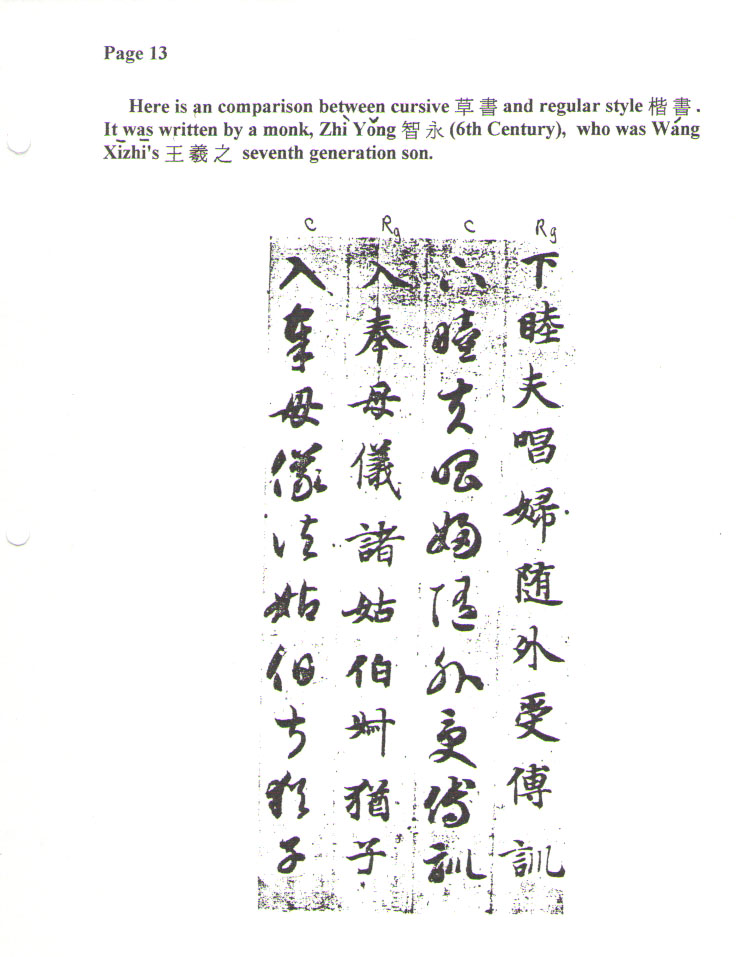 Page 13
Here is an comparison between cursive 草書 and regular style 楷書.
It was written by a monk, Zhì Yǒng 智永 (6th Century), who was Wáng
Xīzhī's 王羲之 seventh generation son.
C Rg C Rg
下睦夫唱婦随外受傅訓
下睦夫唱婦随外受傅訓
入奉母儀諸姑伯叔猶子
入奉母儀諸姑伯叔猶子